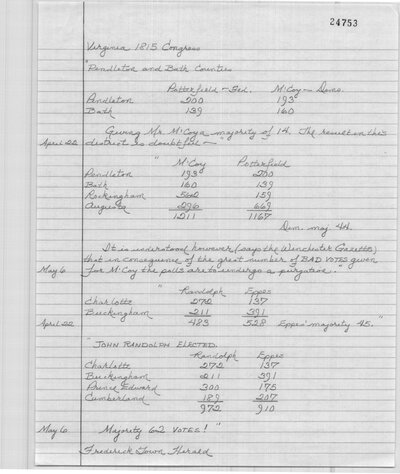 24753
Virginia 1815 Congress
"Pendleton and Bath Counties
Potterfield - Fed. M'Coy - Dem.
Pendleton 200 193
Bath 139 160
Giving Mr. M'Coy a majority of 14. The result in the
April 22 district is doubtful - "
" M'Coy Potterfield
Pendleton 193 200
Bath 160 139
Rockingham 562 159
Augusta 296 669
1211 1167
Dem. maj 44.
It is understood however (says the Winchester Gazette)
that in consequence of the great number of BAD VOTES given
May 6 for M'Coy the polls are to undergo a purgation."
" Randolph Eppes
Charlotte 272 137
Buckingham 211 391
April 22 483 528 Eppes' majority 45."
"JOHN RANDOLPH ELECTED.
Randolph Eppes
Charlotte 272 137
Buckingham 211 391
Prince Edward 300 175
Cumberland 189 207
972 910
May 6 Majority 62 VOTES!"
Frederick Town Herald